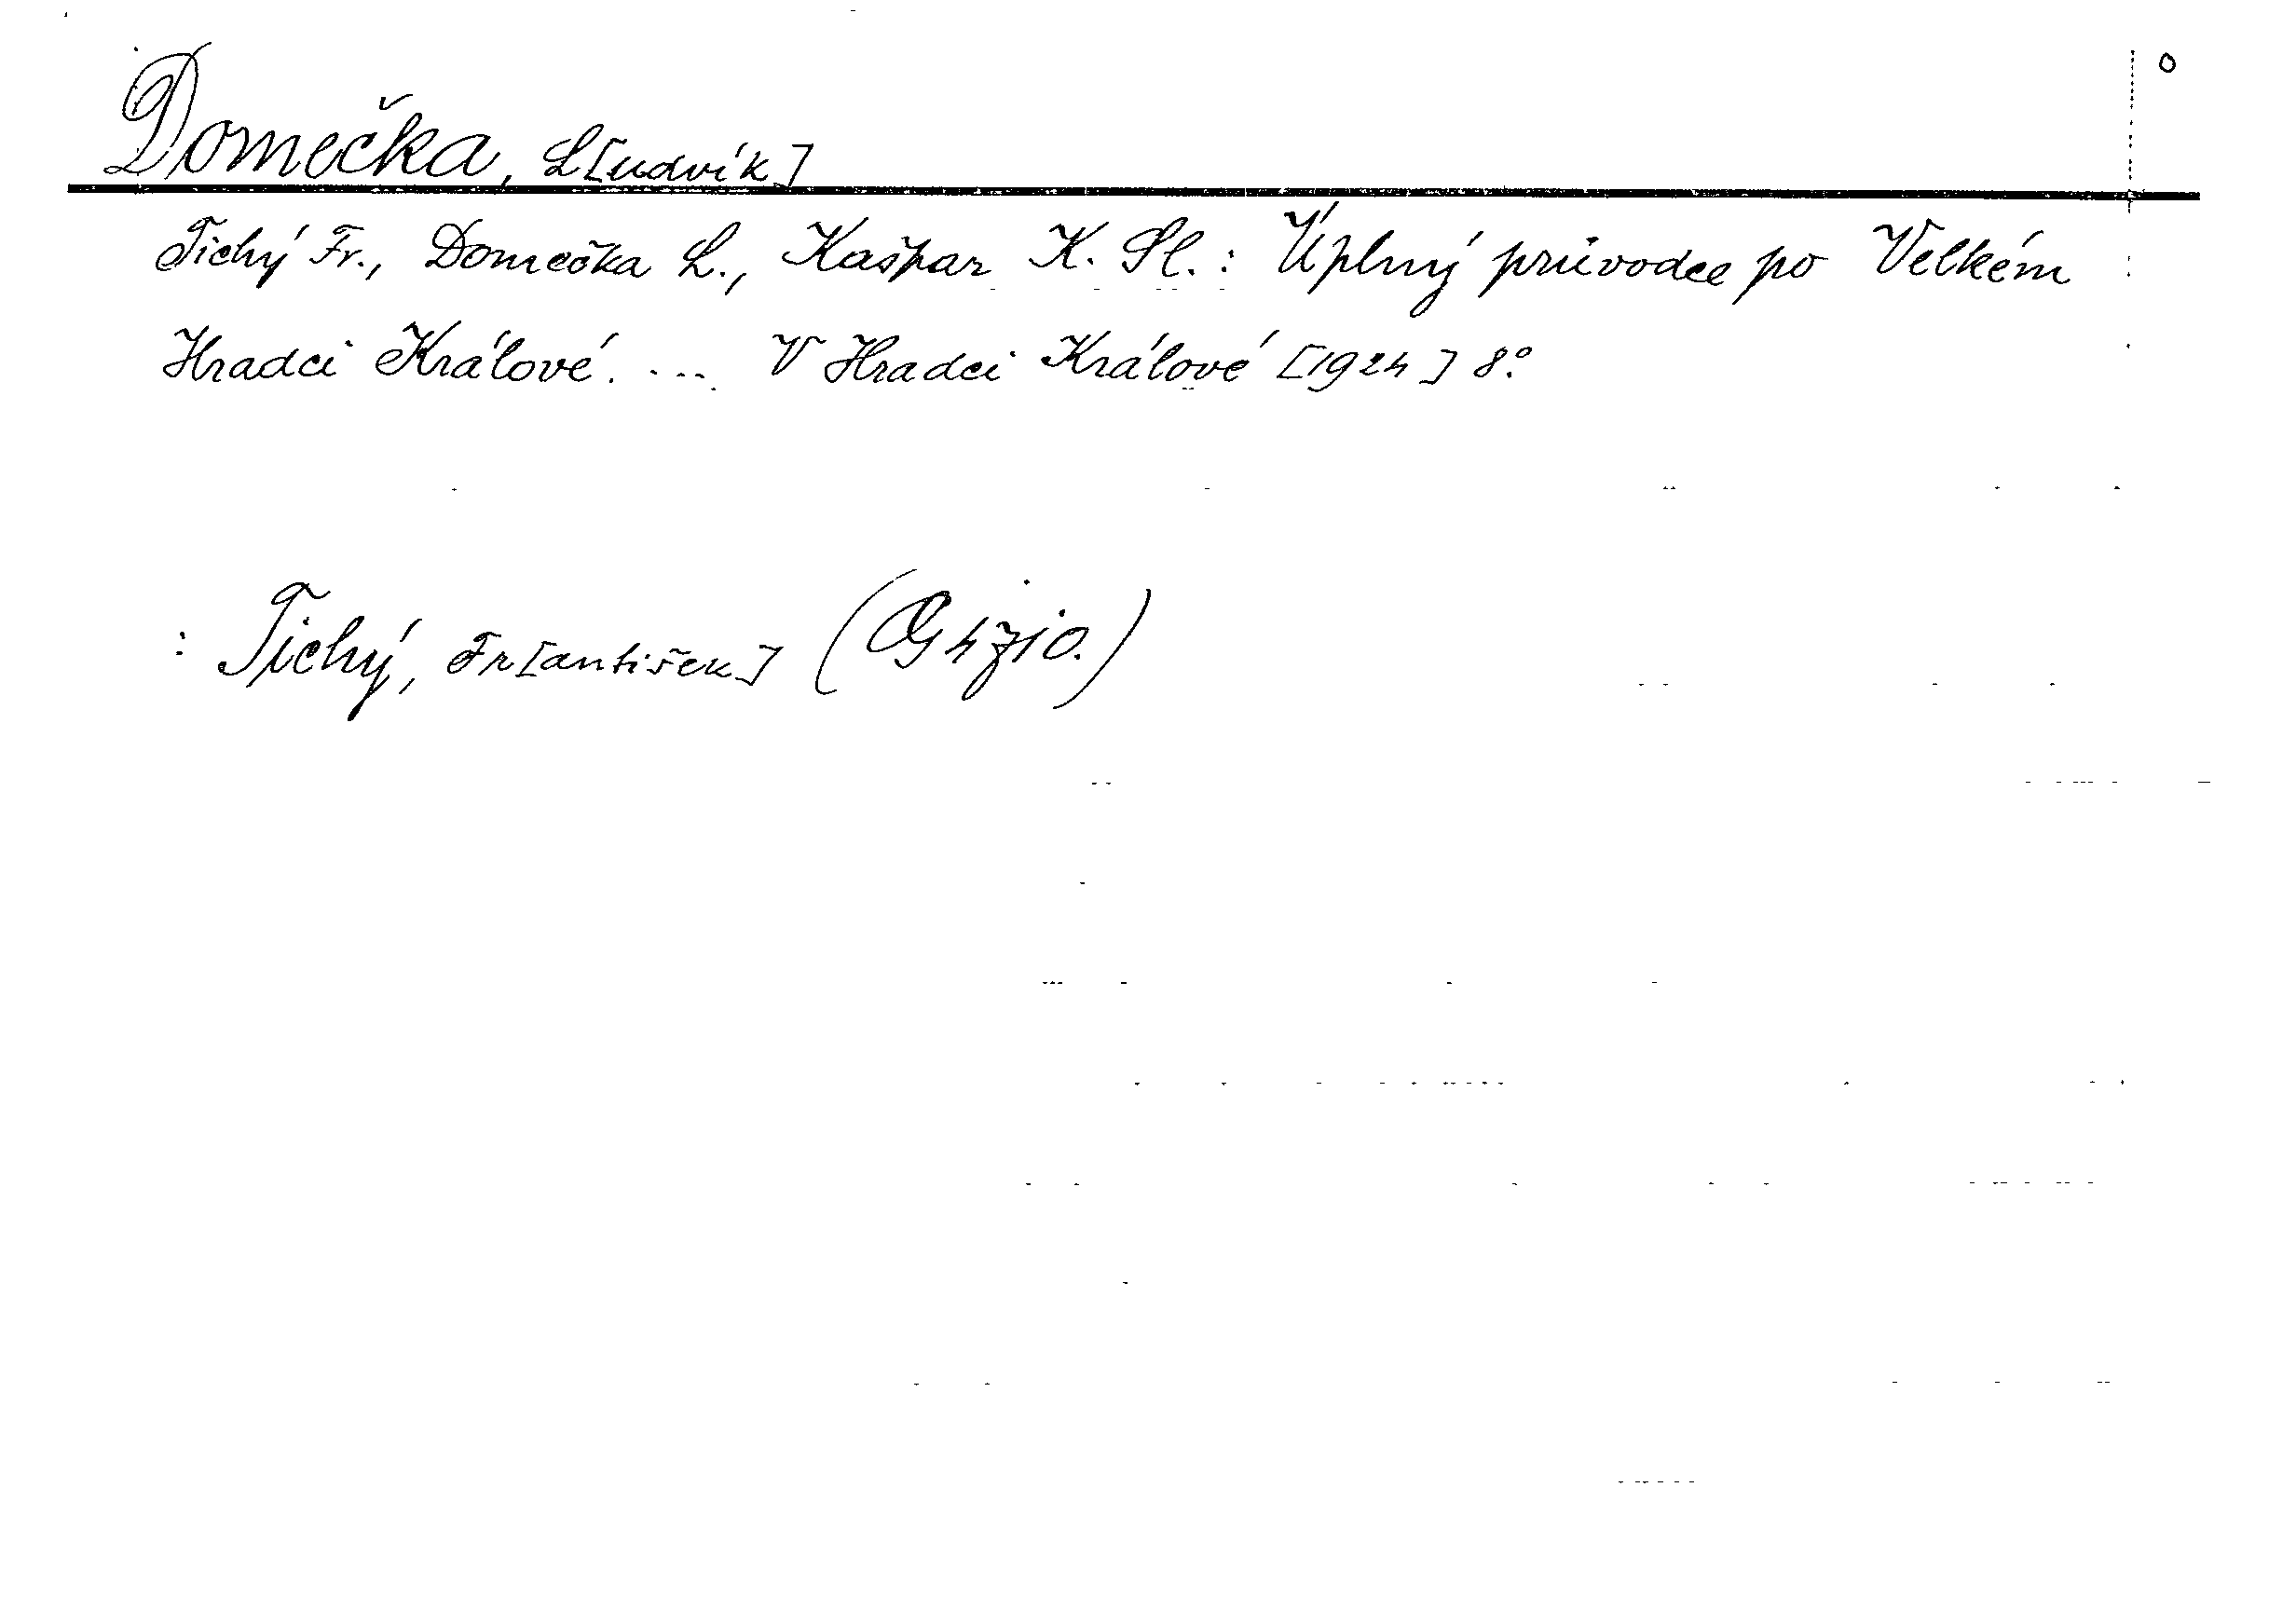 Domečka, L[udvík]
Tichý Fr., Domečka L., Kašpar K. Sl.: Úplný průvodce po Velkém
Hradci Králové. ... V Hradci Králové [1924] 8°.
: Tichý, Fr[antišek]